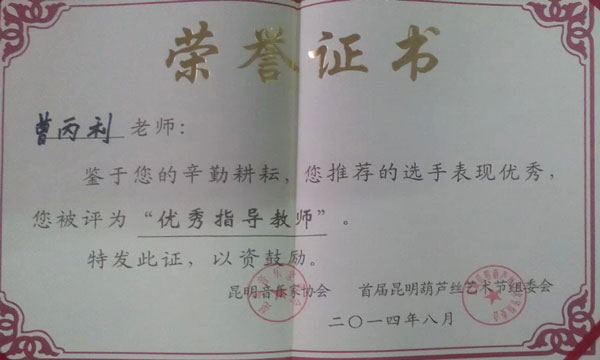 荣誉证书
曹丙利 老师：
鉴于您的辛勤耕耘，您推荐的选手表现优秀，
您被评为“优秀指导教师”。
特发此证，以资鼓励。
昆明音乐家协会 首届昆明葫芦丝艺术节组委会
二〇一四年八月